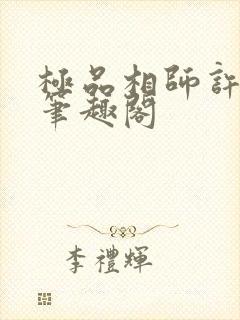 極品相師許
筆趣閣
李禮輝